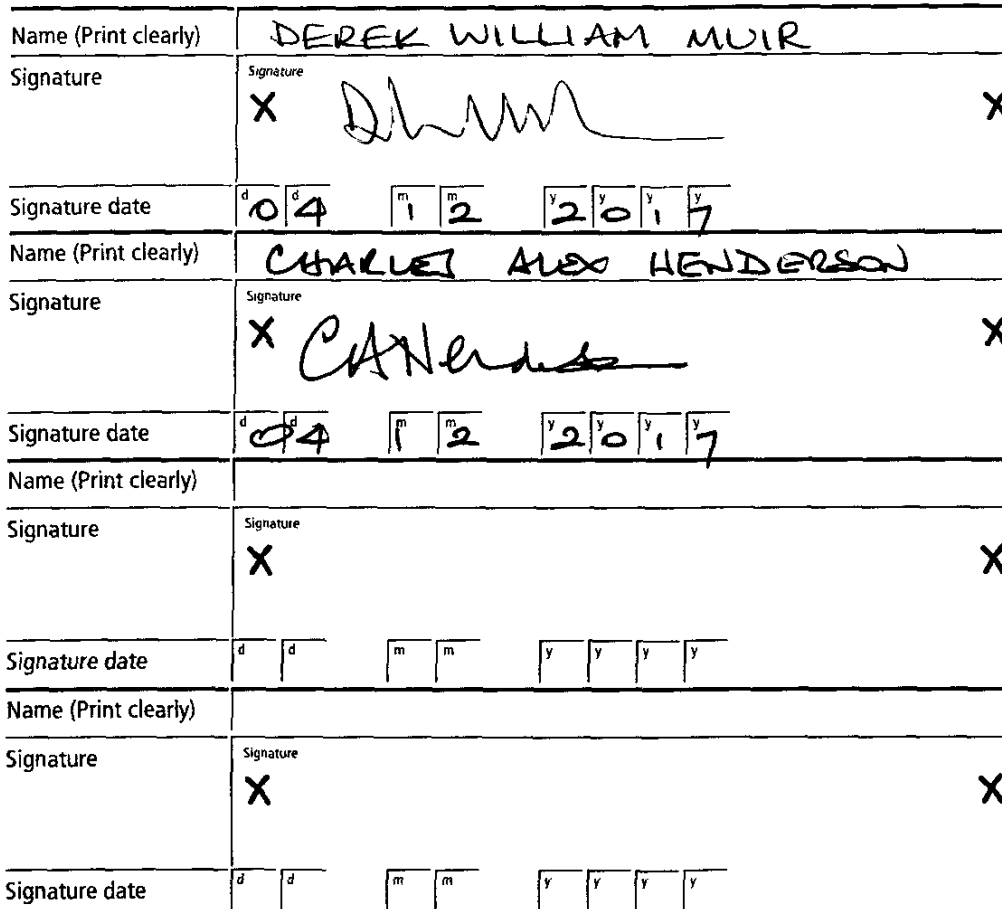 Name (Print clearly) DEREK WILLIAM MUIR
Signature Signature
X X
Signature date d 0 d 4 m 1 m 2 y 2 y 0 y 1 y 7
Name (Print clearly) CHARLES ALEX HENDERSON
Signature Signature
X CAHenderson X
Signature date d 0 d 4 m 1 m 2 y 2 y 0 y 1 y 7
Name (Print clearly)
Signature Signature
X X
Signature date d d m m y y y y
Name (Print clearly)
Signature Signature
X X
Signature date d d m m y y y y